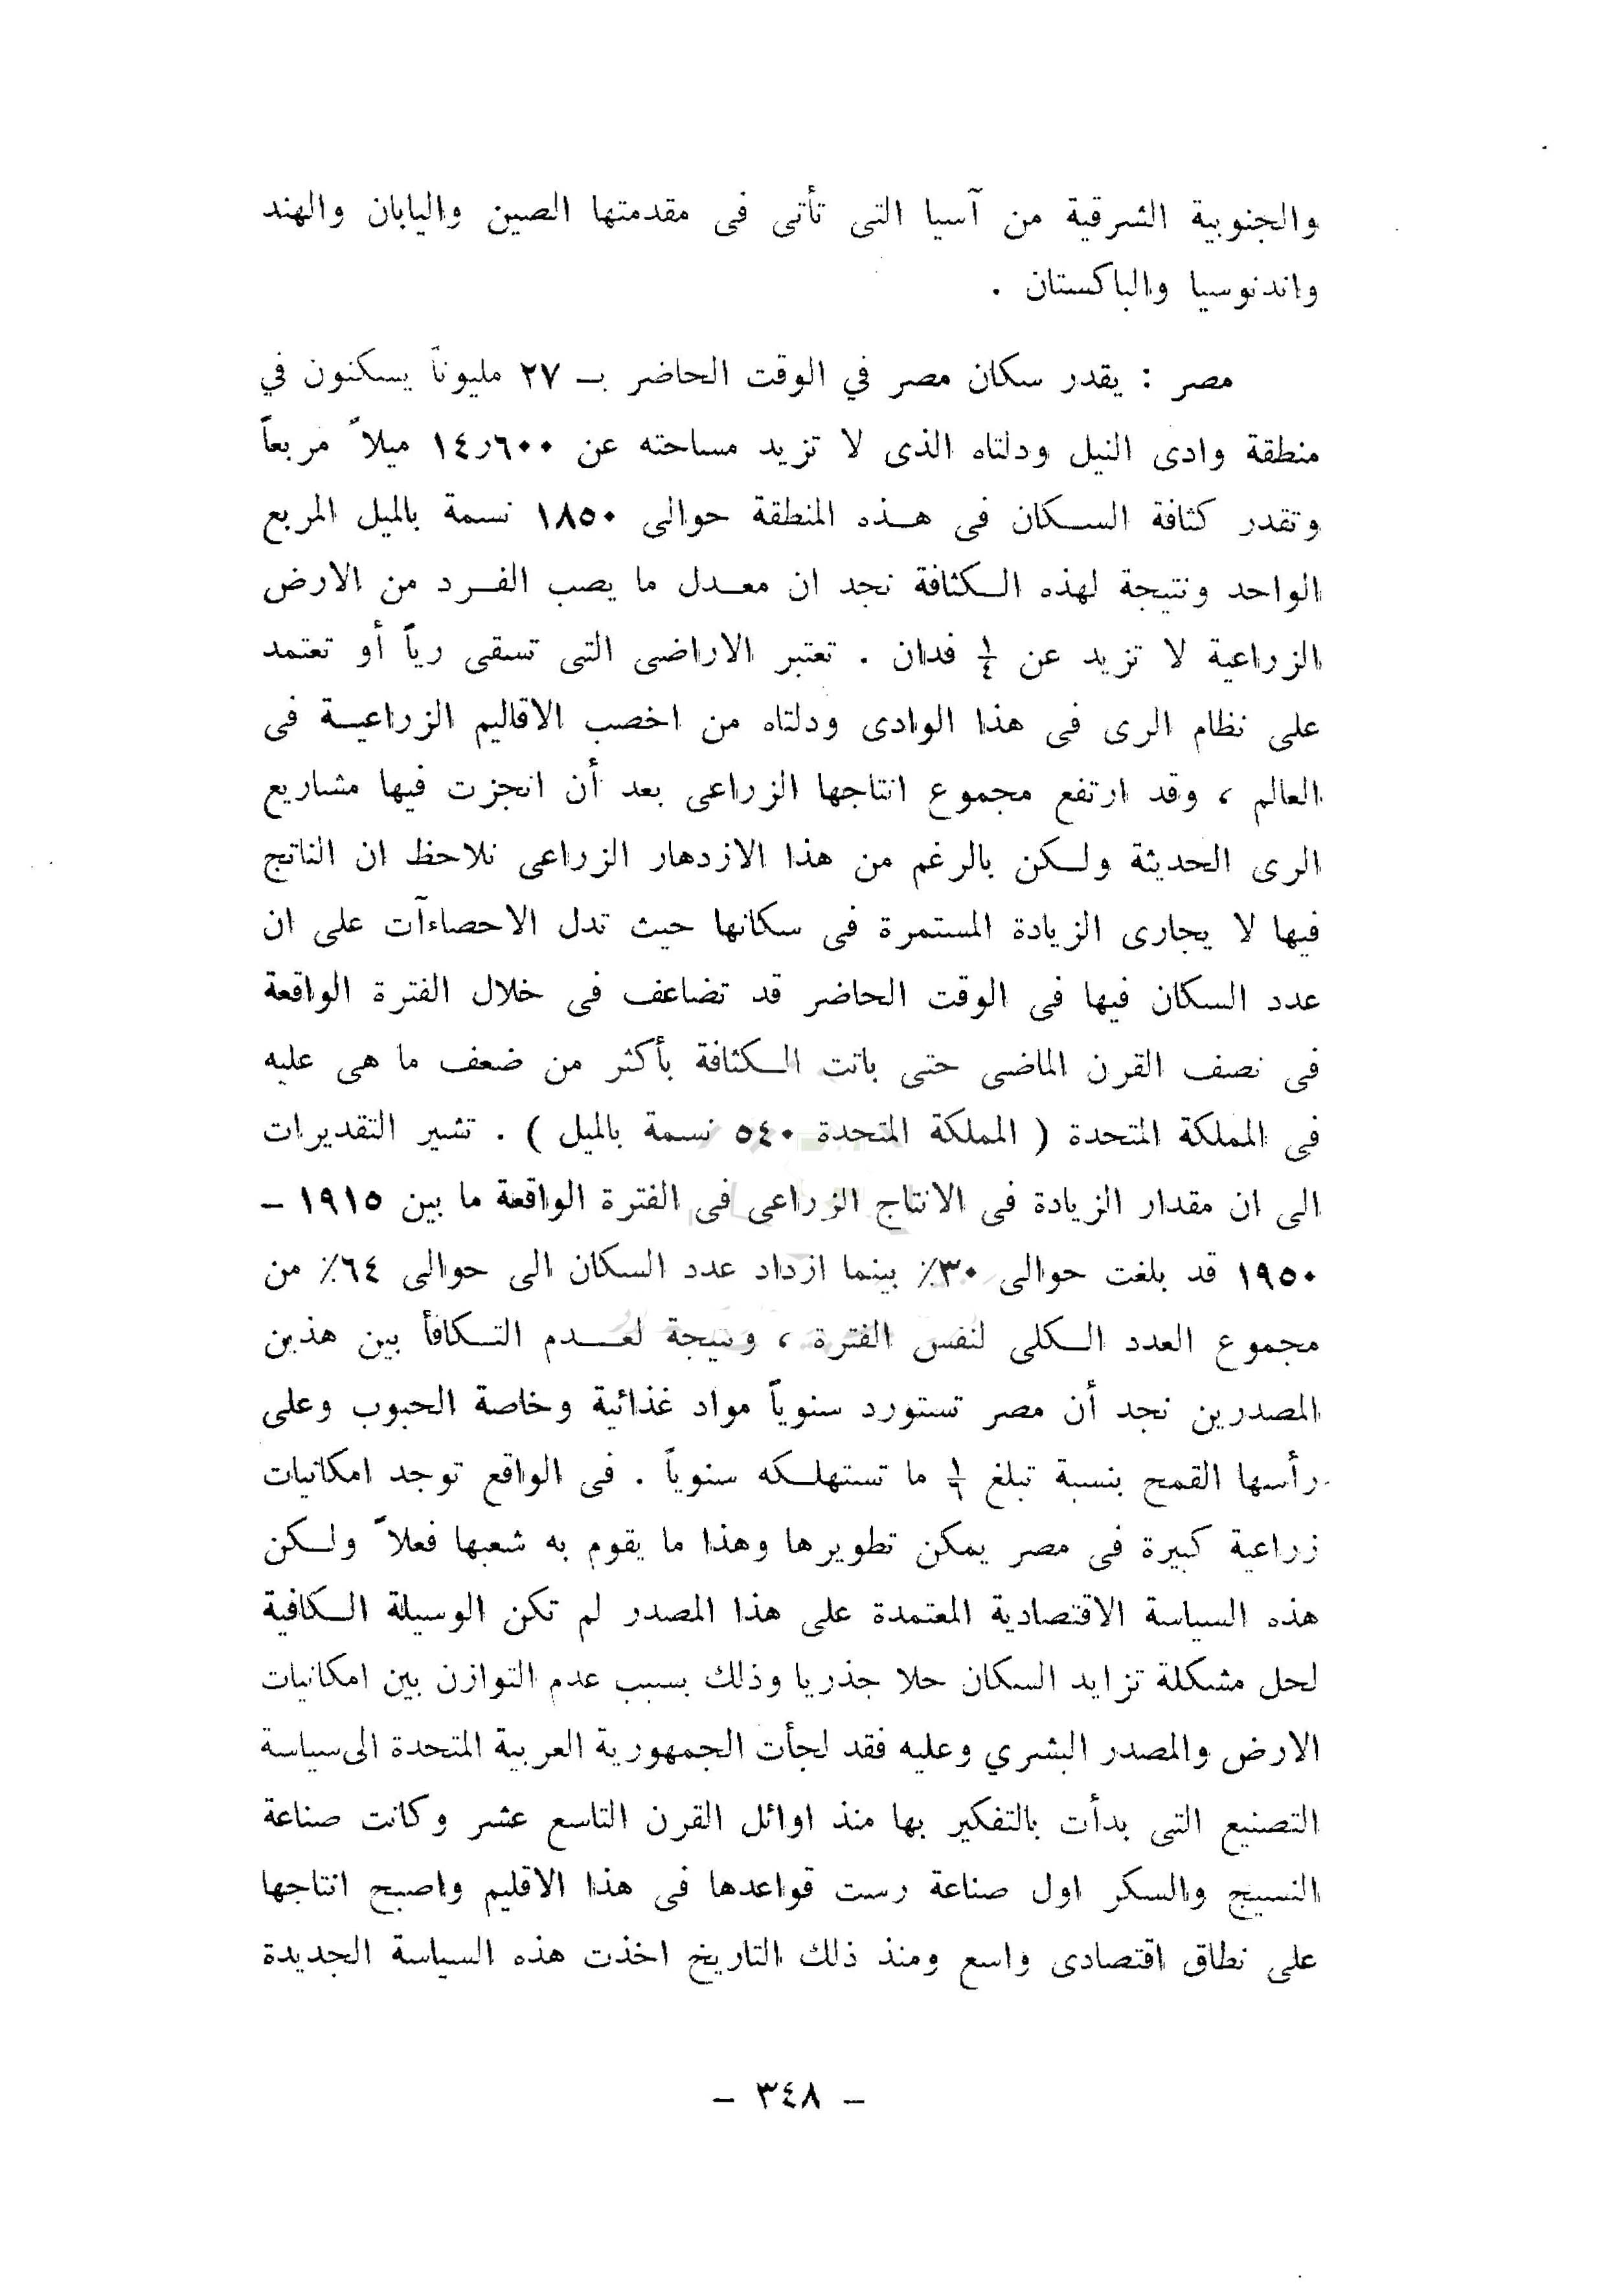 والجنوبية الشرقية من آسيا التى تأتى فى مقدمتها الصين واليابان والهند
واندنوسيا والباكستان .
مصر : يقدر سكان مصر في الوقت الحاضر بـ ٢٧ مليوناً يسكنون في
منطقة وادى النيل ودلتاه الذى لا تزيد مساحته عن ١٤ر٦٠٠ ميلاً مربعاً
وتقدر كثافة السكان فى هـذه المنطقة حوالى ١٨٥٠ نسمة بالميل المربع
الواحد ونتيجة لهذه الـكثافة نجد ان معـدل ما يصب الفـرد من الارض
الزراعية لا تزيد عن ¼ فدان . تعتبر الاراضى التى تسقى رياً أو تعتمد
على نظام الرى فى هذا الوادى ودلتاه من اخصب الاقاليم الزراعيـة فى
العالم ، وقد ارتفع مجموع انتاجها الزراعى بعد أن انجزت فيها مشاريع
الرى الحديثة ولـكن بالرغم من هذا الازدهار الزراعى نلاحظ ان الناتج
فيها لا يجارى الزيادة المستمرة فى سكانها حيث تدل الاحصاءآت على ان
عدد السكان فيها فى الوقت الحاضر قد تضاعف فى خلال الفترة الواقعة
فى نصف القرن الماضى حتى باتت الـكثافة بأكثر من ضعف ما هى عليه
فى المملكة المتحدة ( المملكة المتحدة ٥٤٠ نسمة بالميل ) . تشير التقديرات
الى ان مقدار الزيادة فى الانتاج الزراعى فى الفترة الواقعة ما بين ١٩١٥ -
١٩٥٠ قد بلغت حوالى ٣٠٪ بينما ازداد عدد السكان الى حوالى ٦٤٪ من
مجموع العدد الـكلى لنفس الفترة ، ونتيجة لعـدم التـكافأ بين هذين
المصدرين نجد أن مصر تستورد سنوياً مواد غذائية وخاصة الحبوب وعلى
رأسها القمح بنسبة تبلغ ما تستهلـكه سنوياً . فى الواقع توجد امكانيات
زراعية كبيرة فى مصر يمكن تطويرها وهذا ما يقوم به شعبها فعلاً ولـكن
هذه السياسة الاقتصادية المعتمدة على هذا المصدر لم تكن الوسيلة الـكافية
لحل مشكلة تزايد السكان حلا جذريا وذلك بسبب عدم التوازن بين امكانيات
الارض والمصدر البشري وعليه فقد لجأت الجمهورية العربية المتحدة الى سياسة
التصنيع التى بدأت بالتفكير بها منذ اوائل القرن التاسع عشر وكانت صناعة
النسيج والسكر اول صناعة رست قواعدها فى هذا الاقليم واصبح انتاجها
على نطاق اقتصادى واسع ومنذ ذلك التاريخ اخذت هذه السياسة الجديدة
- ٣٤٨ -